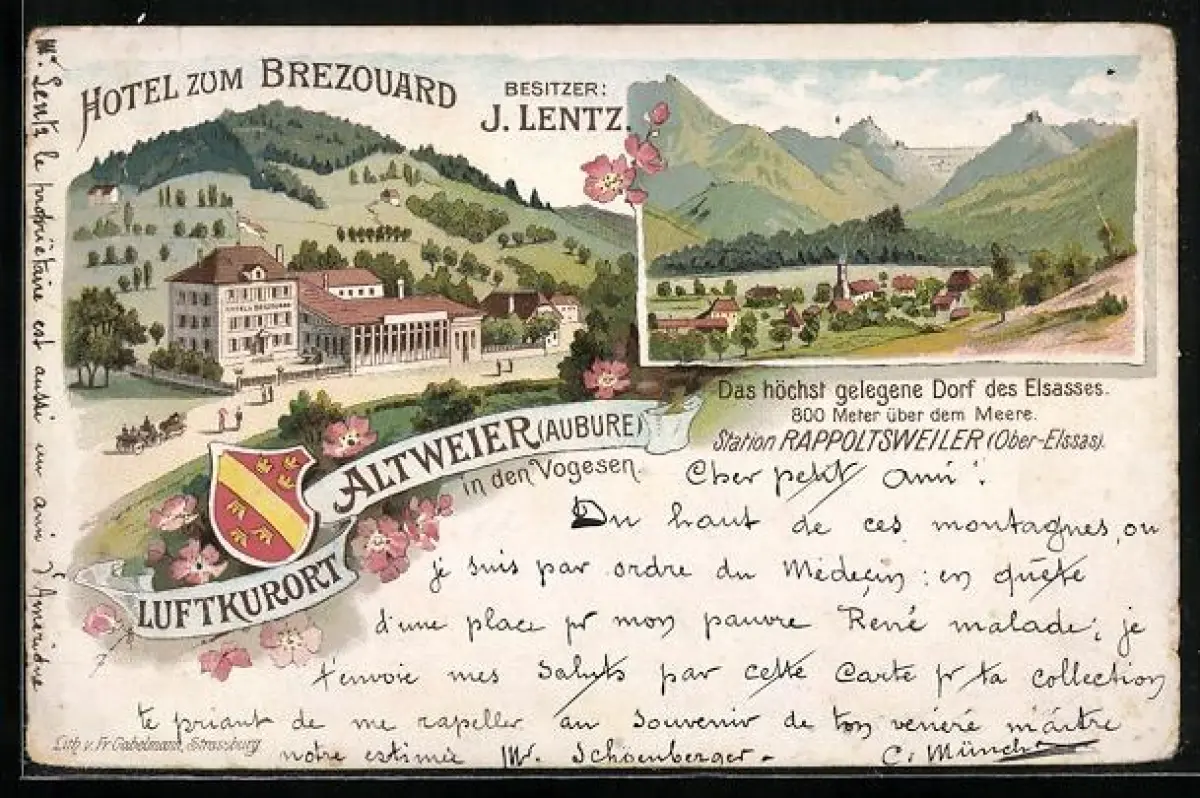 HOTEL ZUM BREZOUARD
BESITZER:
J. LENTZ.
HOTEL BREZOUARD
Das höchst gelegene Dorf des Elsasses.
800 Meter über dem Meere.
Station RAPPOLTSWEILER (Ober-Elssas).
ALTWEIER (AUBURE)
in den Vogesen.
LUFTKURORT
Cher petit ami!
Du haut de ces montagnes, ou
je suis par ordre du Médeçin: en quête
d'une place pr mon pauvre René malade; je
t'envoie mes saluts par cette Carte pr ta collection
te priant de me rapeller au souvenir de ton vénéré maître
notre estimée Mr. Schoenberger -
C. Münch
Lith. v. Fr. Gabelmann, Strassburg
Mr Lentz le propriétaire est aussi un ami